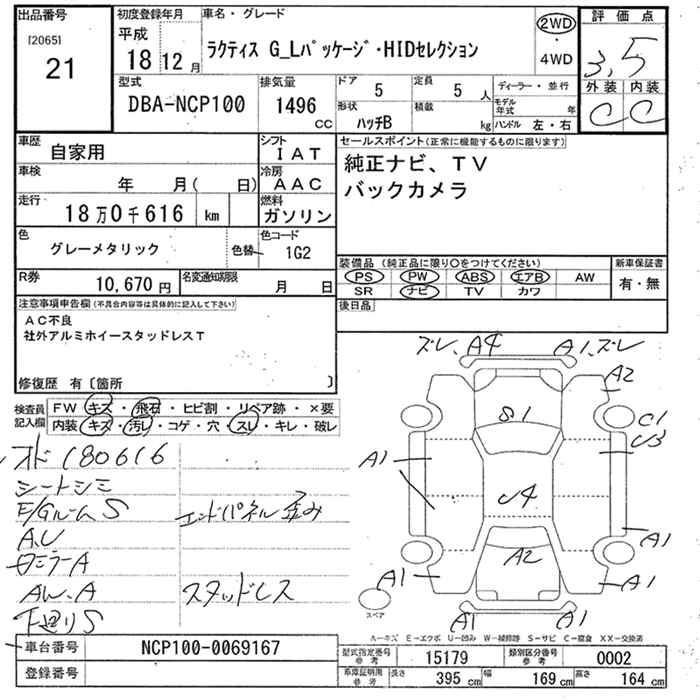 出品番号
[2065]
21
初度登録年月
平成
18年12月
車名・グレード
ラクティス G_Lパッケージ・HIDセレクション
2WD
・
4WD
評価点
3,5
外装 内装
C C
型式
DBA-NCP100
排気量
1496
CC
ドア
5
定員
5人
形状
ハッチB
積載
kg
ディーラー・並行
モデル年式 年
ハンドル 左・右
車歴
自家用
シフト
IAT
車検
年 月( 日)
冷房
AAC
走行
18万0千616 km
燃料
ガソリン
色
グレーメタリック
色替
色コード
1G2
R券
10,670円
名変通知期限
月 日
セールスポイント(正常に機能するものに限ります)
純正ナビ、TV
バックカメラ
装備品 (純正品に限り○をつけてください)
PS PW ABS エアB AW
SR ナビ TV カワ
新車保証書
有・無
後日品
注意事項申告欄(不具合内容等は具体的に記入して下さい)
AC不良
社外アルミホイースタッドレスT
修復歴 有〔箇所 〕
検査員
記入欄
FW キズ・飛石・ヒビ割・リペア跡・×要
内装 キズ・汚レ・コゲ・穴・スレ・キレ・破レ
オド180616
シートシミ
E/GルームS
エンドパネル歪み
A.U
ロミラーA
AW.A
スタッドレス
下廻りS
ズレ、A4
A1、ズレ
A2
S1
C1
U3
A1
U4
A2
A1
A1
A1
A1
A1
スペア
A-キズ E-エクボ U-凹み W-補修跡 S-サビ C-腐食 XX-交換済
車台番号
NCP100-0069167
登録番号
型式指定番号
参考
15179
類別区分番号
参考
0002
車庫証明用
参考
長さ
395cm
幅
169cm
高さ
164cm